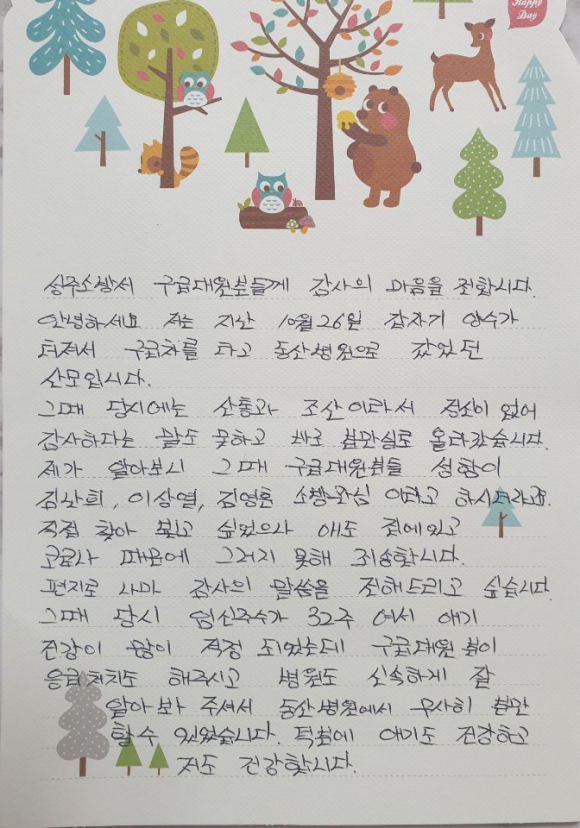 Happy
Day
성주소방서 구급대원분들께 감사의 마음을 전합니다.
안녕하세요 저는 지난 10월 26일 갑자기 양수가
터져서 구급차를 타고 동산병원으로 갔었던
산모입니다.
그때 당시에는 산통과 조산이라서 정신이 없어
감사하다는 말도 못하고 바로 분만실로 올라갔습니다.
제가 알아보니 그때 구급대원분들 성함이
이상열, 김영훈 소방관님 이라고 하시더라고요.
직접 찾아 뵙고 싶었으나 애도 집에있고
코로나 때문에 그러지 못해 죄송합니다.
편지로 나마 감사의 말씀을 전해드리고 싶습니다
그때 당시 임신주수가 32주 여서 애기
건강이 많이 걱정 되었는데 구급대원 분이
응급처치도 해주시고 병원도 신속하게 잘
알아봐 주셔서 동산병원에서 무사히 분만
할수 있었습니다. 덕분에 애기도 건강하고
저도 건강합니다.